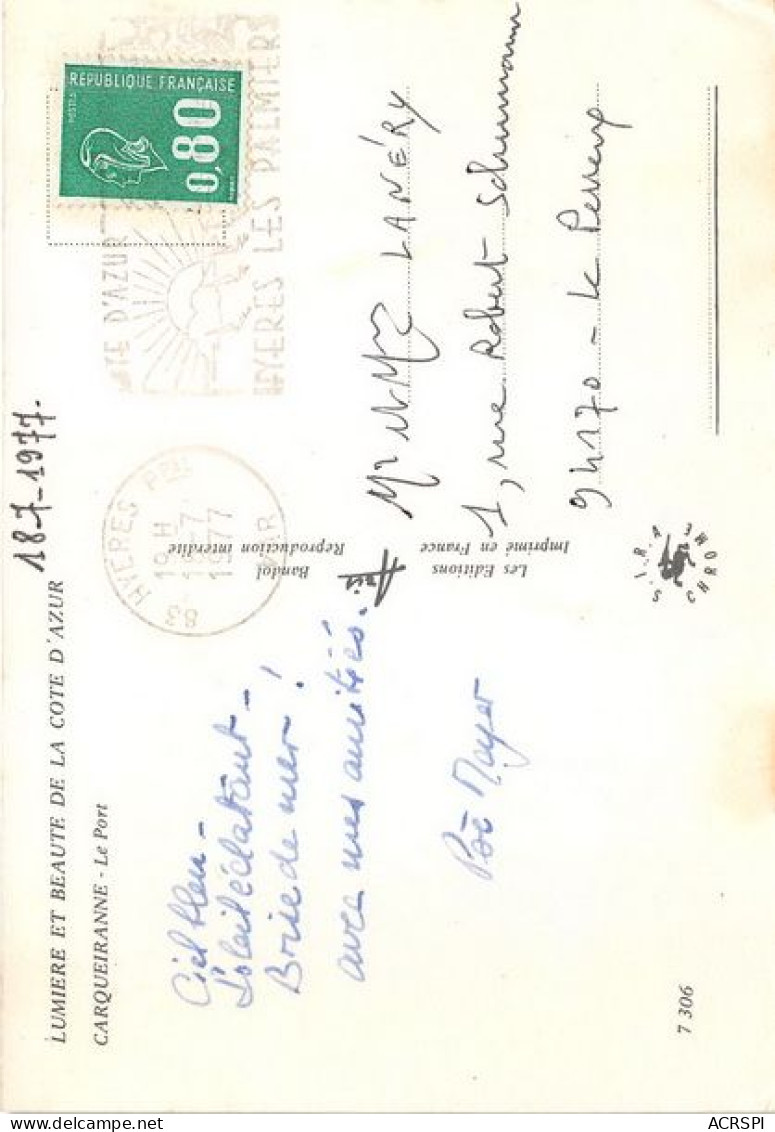 LUMIERE ET BEAUTE DE LA COTE D'AZUR
CARQUEIRANNE - Le Port
18-7-1977.
Ciel bleu -
Soleil éclatant -
Brise de mer !
avec mes amitiés.
Mayer
7 306
Les Editions
Bandol
Imprimé en France
Reproduction interdite
S.I.R.A.
CHROME
REPUBLIQUE FRANÇAISE
POSTES
0,80
COTE D'AZUR
HYERES LES PALMIERS
83 HYERES PAL
19 H
18-7
1977
VAR
LANÉRY
1, rue Robert Schumann
94170 - Le Perreux
delcampe.net
ACRSPI